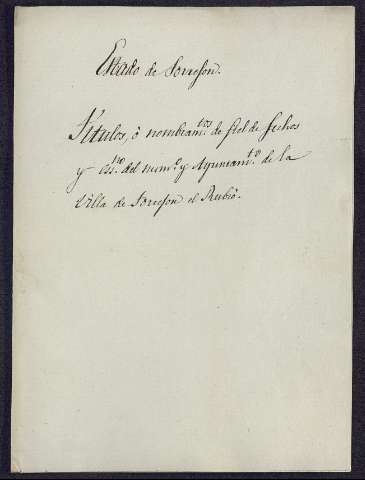 Estado de Torrejon.
Titulos, ò nombram.tos de fiel de fechos
y ess.no del num.o y Ayuntam.to de la
Villa de Torrejon el Rubio.